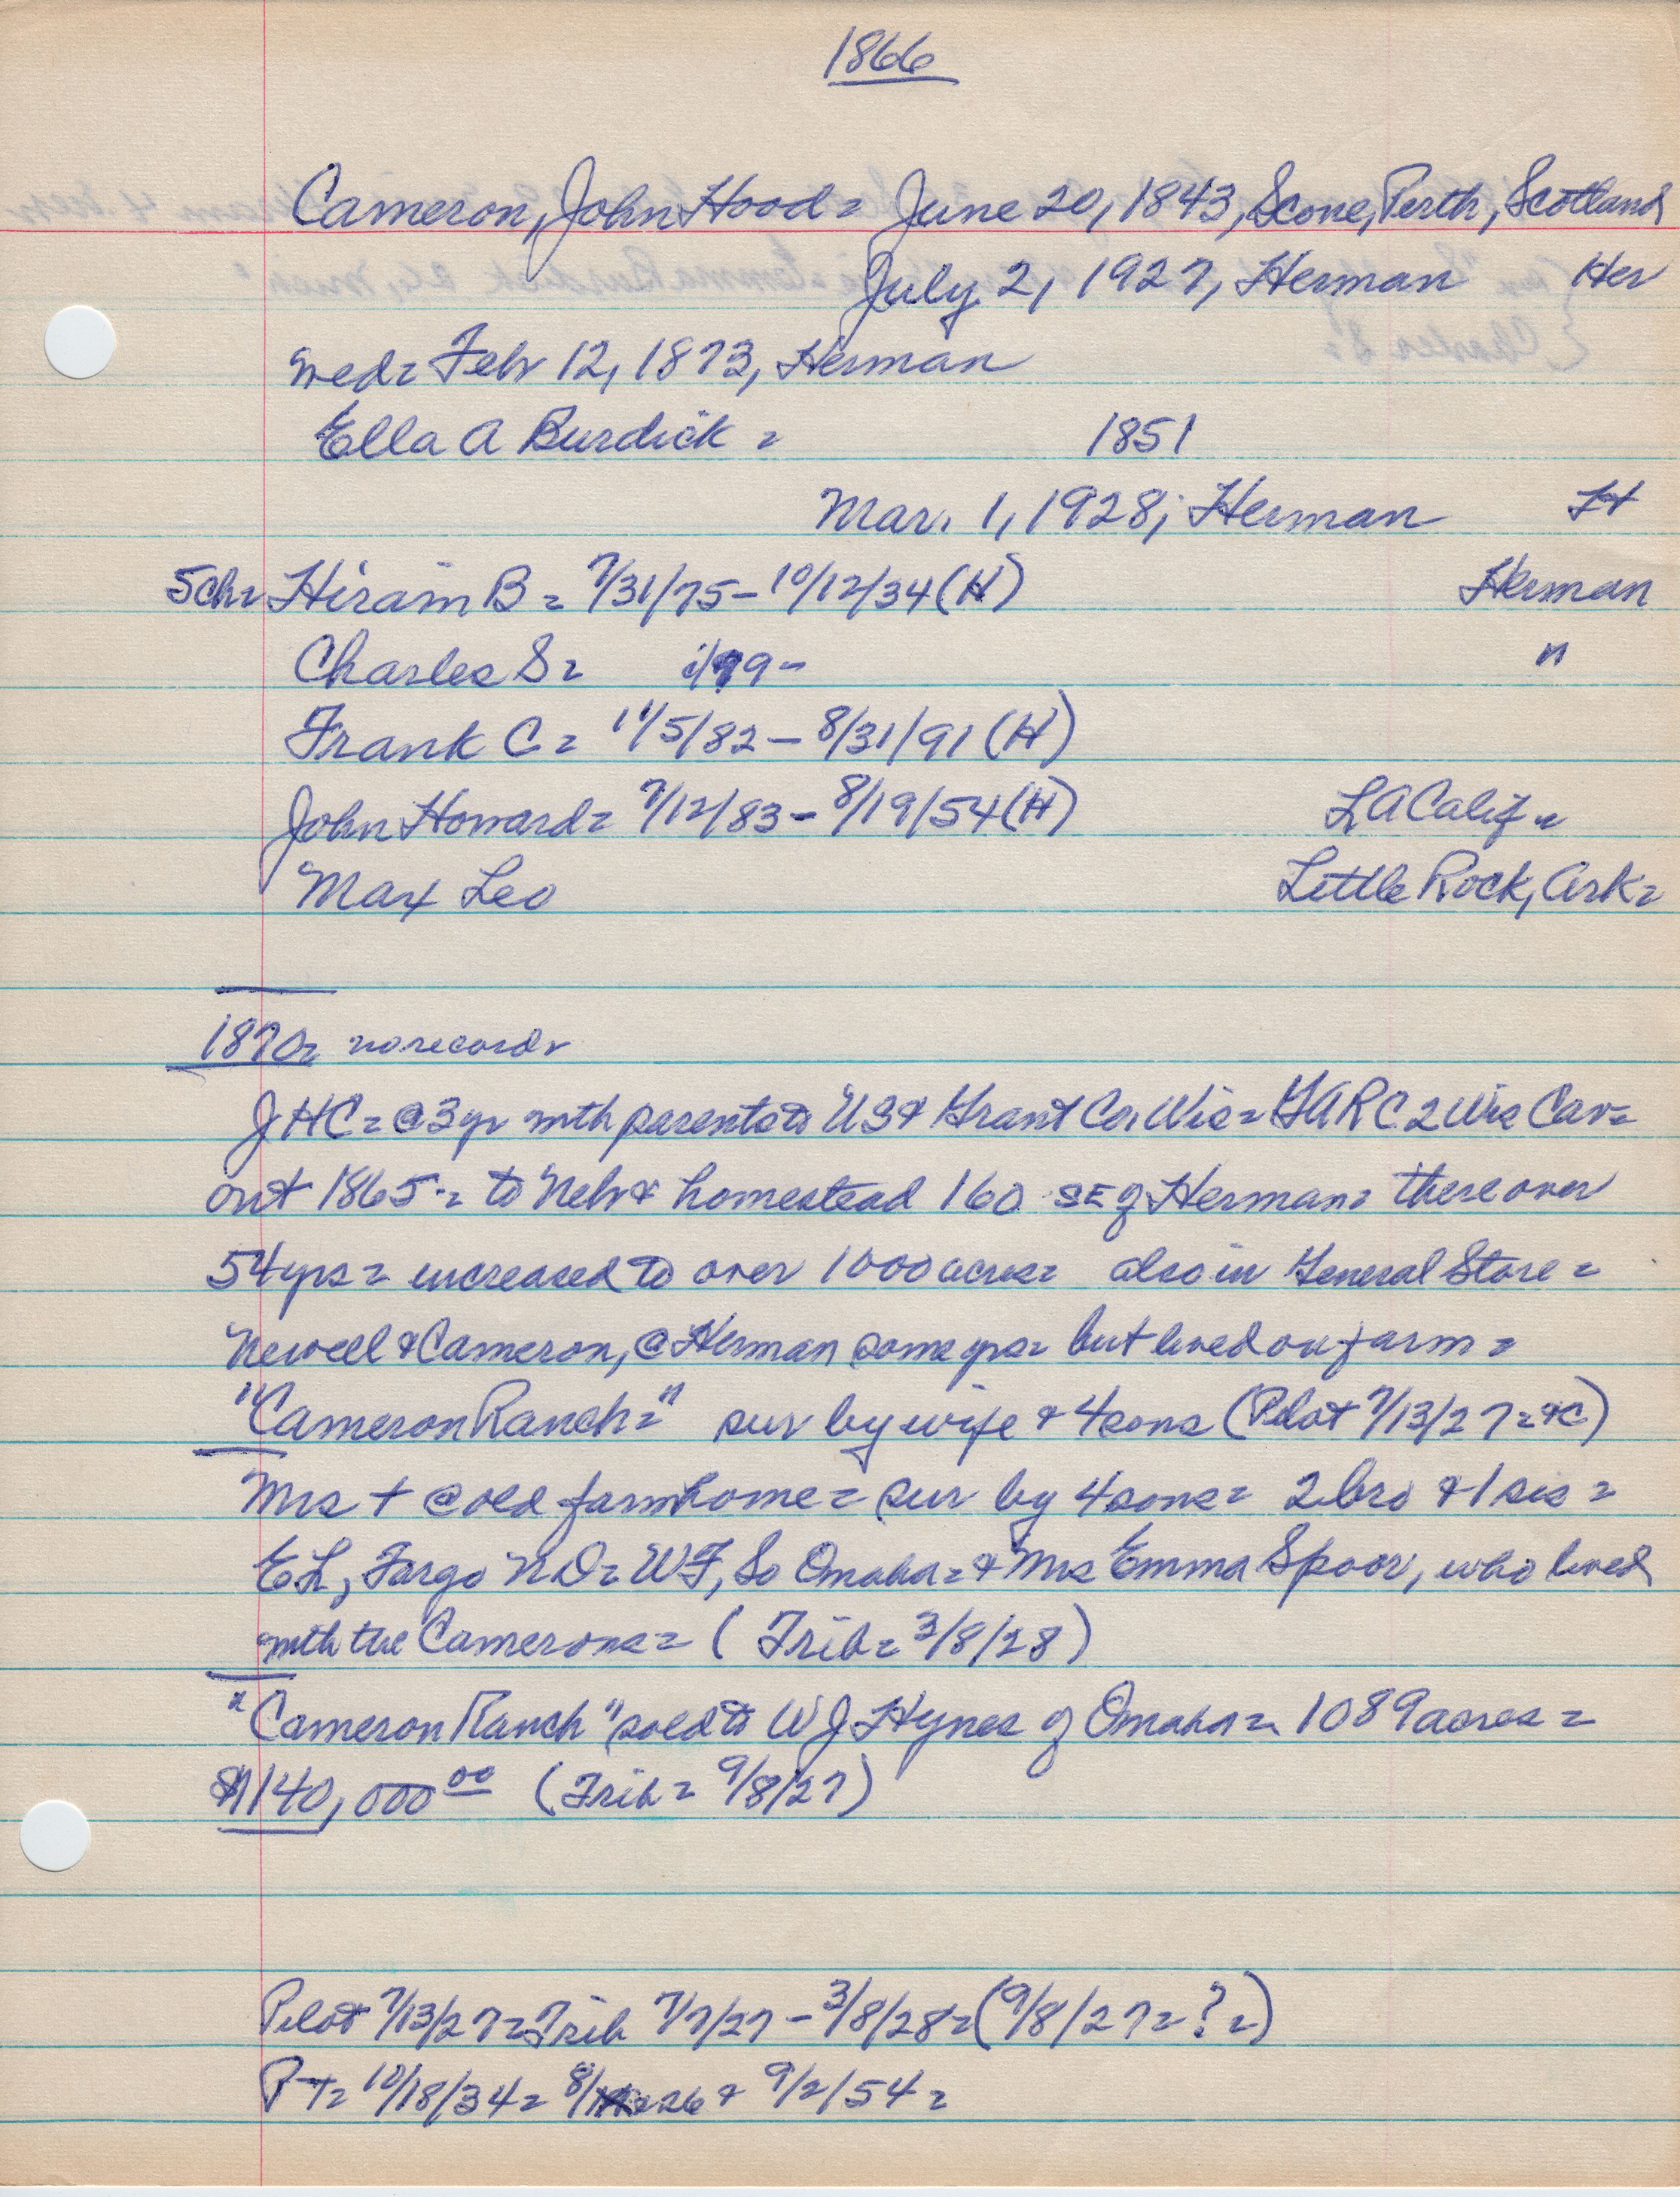 1866
Cameron, John Hood = June 20, 1843, Scone, Perth, Scotland
July 2, 1927, Herman Her
wed = Feb 12, 1873, Herman
Ella A Burdick = 1851
Mar. 1, 1928; Herman H
5ch = Hiram B = 7/31/75 - 10/12/34 (H) Herman
Charles S = "
Frank C = 11/5/82 - 8/31/91 (H)
John Howard = 7/12/83 - 8/19/54 (H) LA Calif =
Max Leo Little Rock, Ark =
1870 = no record =
JHC = @ 3 yr with parents to US & Grant Co, Wis = GAR C 2 Wis Cav =
out 1865 = to Nebr & homestead 160 SE of Herman = there over
54 yrs = increased to over 1000 acres = also in General Store =
Newell & Cameron, @ Herman some yrs = but lived on farm =
"Cameron Ranch =" sur by wife & 4 sons (Pilot 7/13/27 = &c)
Mrs + @ old farm home = sur by 4 sons = 2 bro & 1 sis =
EL, Fargo ND = WF, So Omaha = & Mrs Emma Spoor, who lived
with the Camerons = (Trib = 3/8/28)
"Cameron Ranch" sold to WJ Hynes of Omaha = 1089 acres =
$140,000 00 (Trib = 9/8/27)
Pilot 7/13/27 = Trib 7/7/27 - 3/8/28 = (9/8/27 = ? =)
PT = 10/18/34 = 8/26 & 9/2/54 =